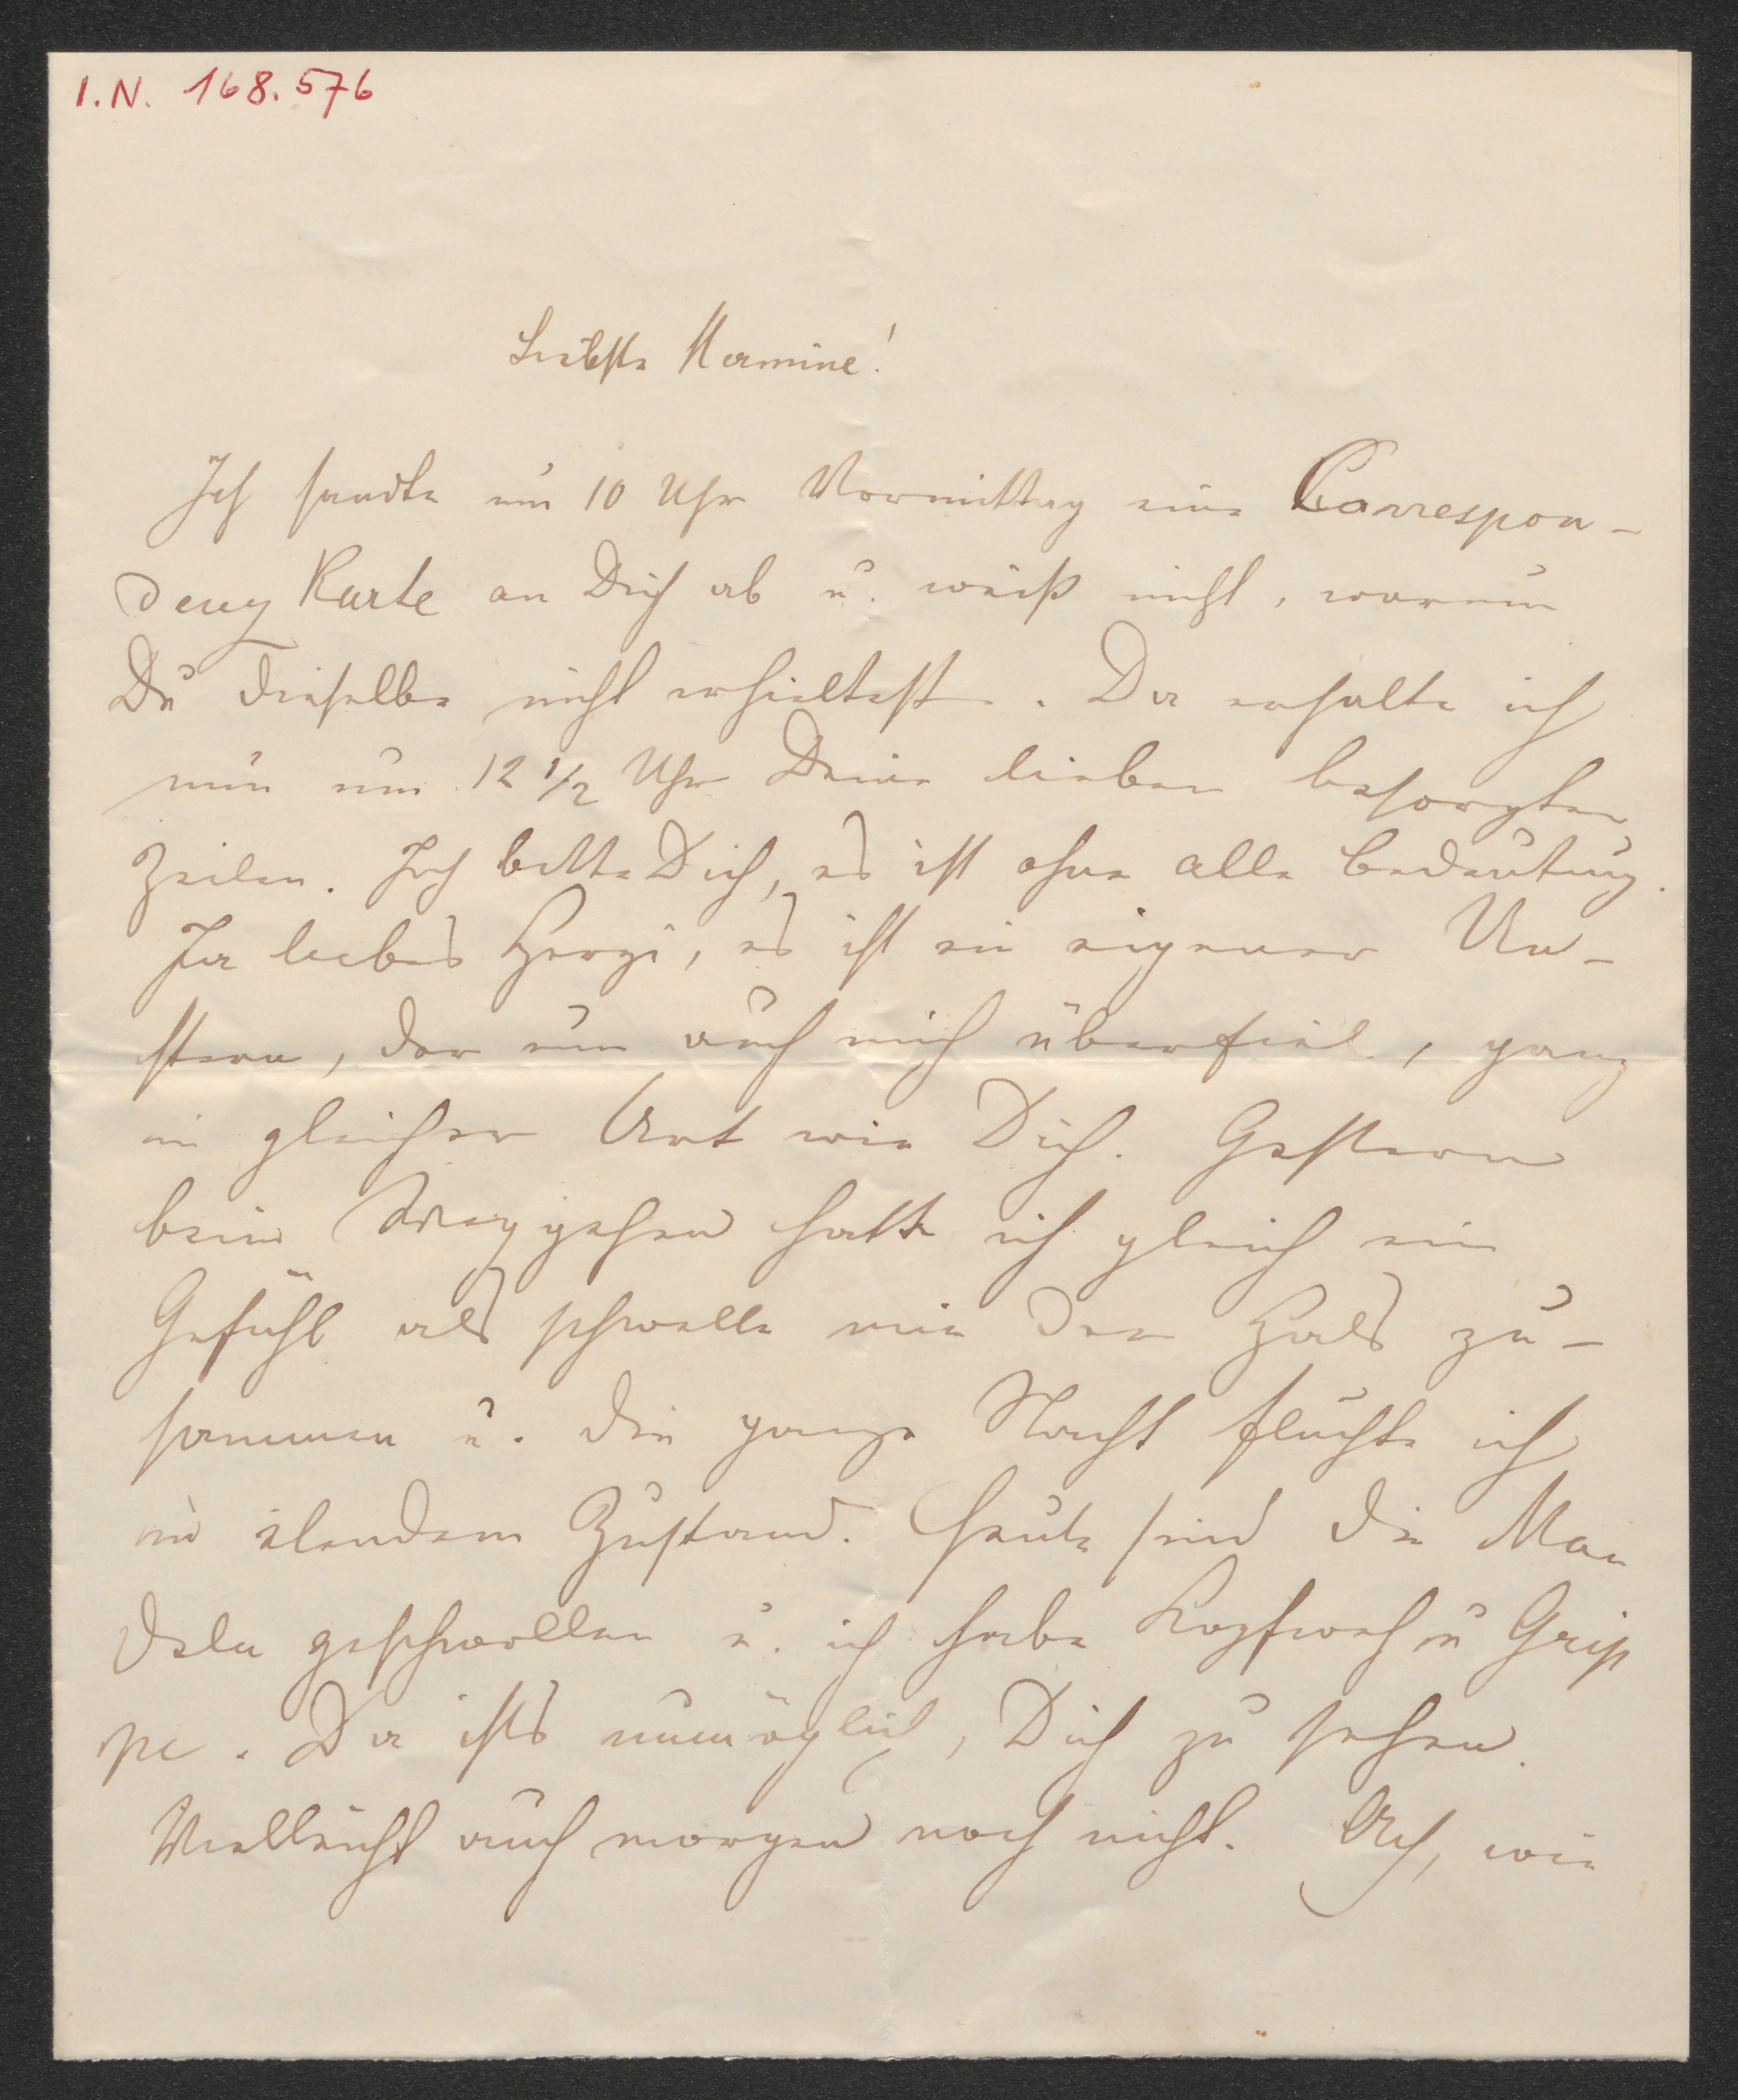 I.N. 168.576
Liebste Hermine!
Ich sandte um 10 Uhr Vormittag eine Correspon-
denz Karte an Dich ab u. weiß nicht, warum
Du dieselbe nicht erhieltest. Da erhalte ich
nun um 12 1/2 Uhr Deine lieben besorgten
Zeilen. Ich bitte Dich, es ist ohne alle Bedeutung.
Ja liebes Herzi, es ist ein eigener Un-
stern, der nun auch mich überfiel, ganz
in gleicher Art wie Dich. Gestern
beim Weggehen hatte ich gleich ein
Gefühl als schwelle mir der Hals zu-
sammen u. die ganze Nacht fluchte ich
in elendem Zustand. Heute sind die Man
deln geschwollen u. ich habe Kopfweh u Grip
pe. Da ists unmöglich, Dich zu sehen.
Vielleicht auch morgen noch nicht. Ach, wie